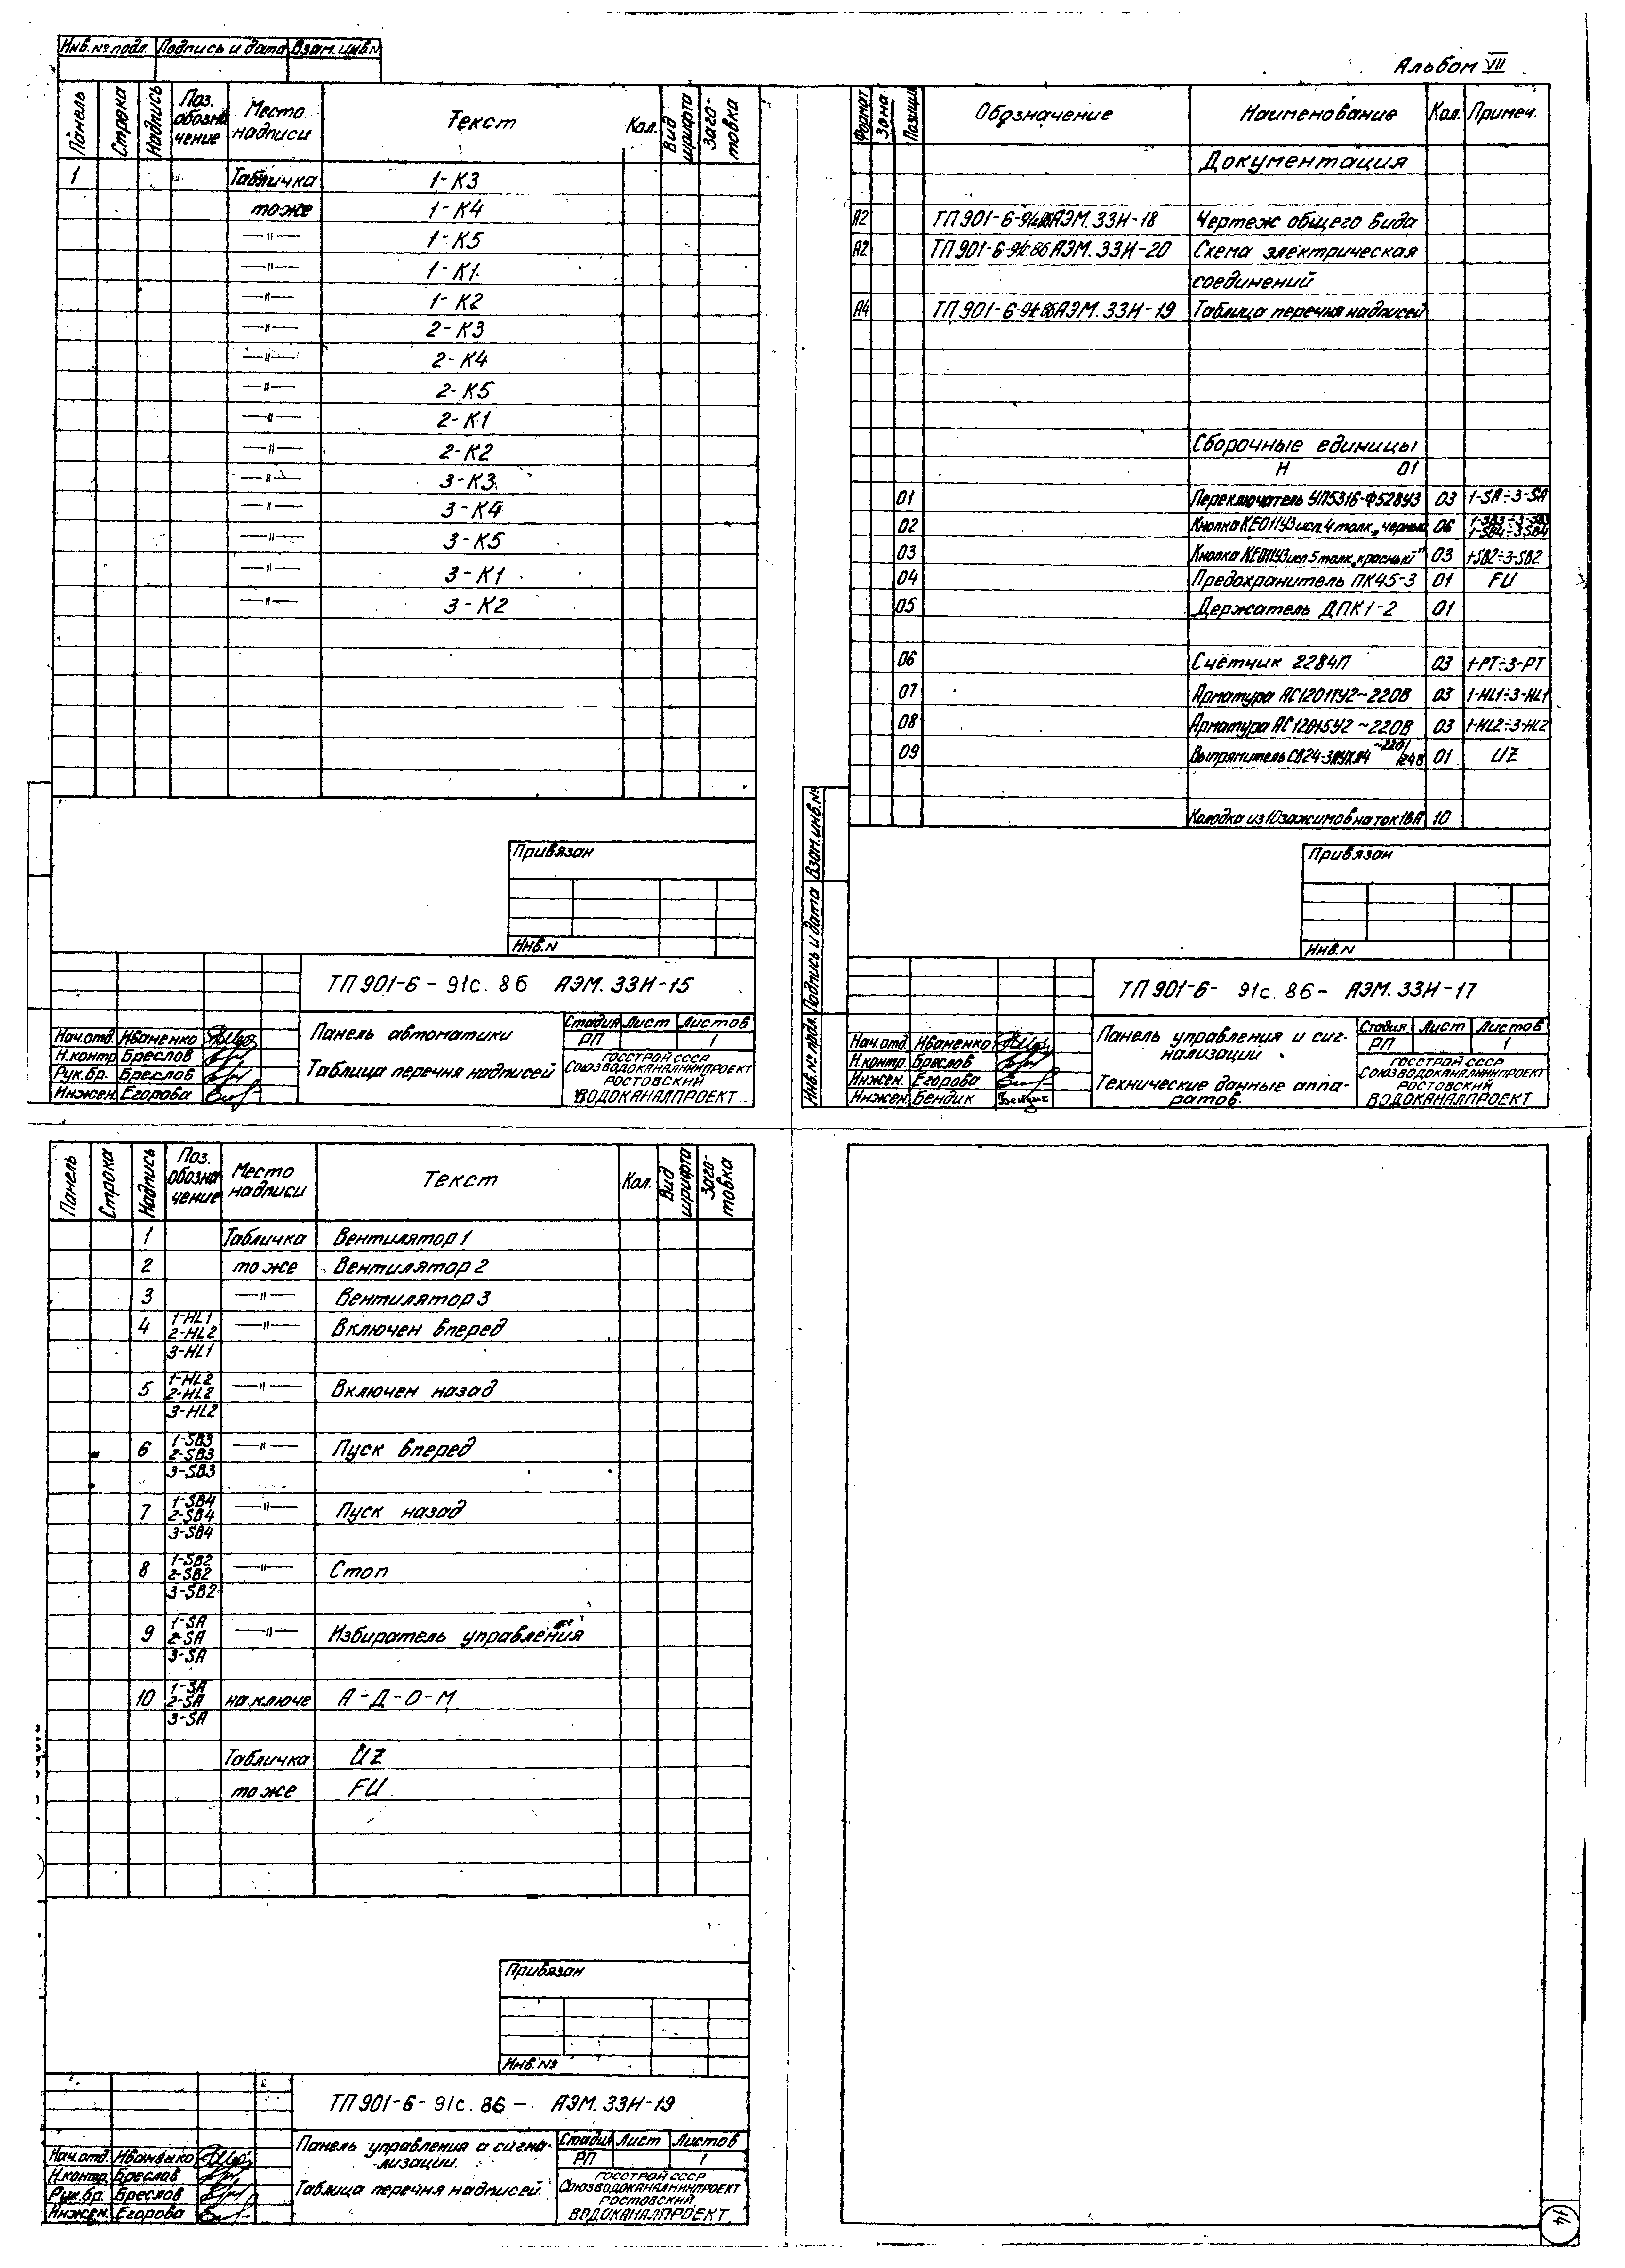 Инв.№ подл. Подпись и дата Взам.инв.N
Альбом VII
Панель Строка Надпись Поз. обозначение Место надписи Текст Кол. Вид шрифта Заготовка
1 Табличка 1-К3
то же 1-К4
—"— 1-К5
—"— 1-К1
—"— 1-К2
—"— 2-К3
—"— 2-К4
—"— 2-К5
—"— 2-К1
—"— 2-К2
—"— 3-К3
—"— 3-К4
—"— 3-К5
—"— 3-К1
—"— 3-К2
Привязан
Инв.N
ТП 901-6-91с.86 АЭМ.33Н-15
Нач.отд. Иваненко
Н.контр. Бреслов
Рук.бр. Бреслов
Инжен. Егорова
Панель автоматики
Таблица перечня надписей
Стадия Лист Листов
РП 1
ГОССТРОЙ СССР
СОЮЗВОДОКАНАЛНИИПРОЕКТ
РОСТОВСКИЙ
ВОДОКАНАЛПРОЕКТ
Формат Зона Позиция Обозначение Наименование Кол. Примеч.
Документация
А2 ТП 901-6-91с.86 АЭМ.33Н-18 Чертеж общего вида
А2 ТП 901-6-91с.86 АЭМ.33Н-20 Схема электрическая
соединений
А4 ТП 901-6-91с.86 АЭМ.33Н-19 Таблица перечня надписей
Сборочные единицы
Н 01
01 Переключатель УП5316-Ф528У3 03 1-SA÷3-SA
02 Кнопка КЕ011У3 исп.4 толк. „черный 06 1-SB3÷3-SB3
1-SB4÷3-SB4
03 Кнопка КЕ011У3 исп 5 толк. „красный" 03 1-SB2÷3-SB2
04 Предохранитель ПК45-3 01 FU
05 Держатель ДПК1-2 01
06 Счётчик 2284П 03 1-PT÷3-PT
07 Арматура АС12011У2~220В 03 1-HL1÷3-HL1
08 Арматура АС12015У2~220В 03 1-HL2÷3-HL2
09 Выпрямитель ~220/ 24В 01 UZ
Колодка из 10 зажимов на ток 16А 10
Взам.инв.№
Подпись и дата
Инв.№ подл.
Привязан
Инв.N
ТП 901-6- 91с.86- АЭМ.33Н-17
Нач.отд. Иваненко
Н.контр. Бреслов
Инжен. Егорова
Инжен. Бендик
Панель управления и сиг-
нализации
Технические данные аппа-
ратов.
Стадия Лист Листов
РП 1
ГОССТРОЙ СССР
СОЮЗВОДОКАНАЛНИИПРОЕКТ
РОСТОВСКИЙ
ВОДОКАНАЛПРОЕКТ
Панель Строка Надпись Поз. обозначение Место надписи Текст Кол. Вид шрифта Заготовка
1 Табличка Вентилятор 1
2 то же Вентилятор 2
3 —"— Вентилятор 3
4 1-HL1 2-HL2 —"— Включен вперед
3-HL1
5 1-HL2 2-HL2 —"— Включен назад
3-HL2
6 1-SB3 2-SB3 —"— Пуск вперед
3-SB3
7 1-SB4 2-SB4 —"— Пуск назад
3-SB4
8 1-SB2 2-SB2 —"— Стоп
3-SB2
9 1-SA 2-SA —"— Избиратель управления
3-SA
10 1-SA 2-SA на ключе А-Д-О-М
3-SA
Табличка UZ
то же FU
Привязан
Инв.№
ТП 901-6-91с.86- АЭМ.33Н-19
Нач.отд. Иваненко
Н.контр. Бреслов
Рук.бр. Бреслов
Инжен. Егорова
Панель управления и сигна-
лизации.
Таблица перечня надписей.
Стадия Лист Листов
РП 1
ГОССТРОЙ СССР
СОЮЗВОДОКАНАЛНИИПРОЕКТ
РОСТОВСКИЙ
ВОДОКАНАЛПРОЕКТ
14